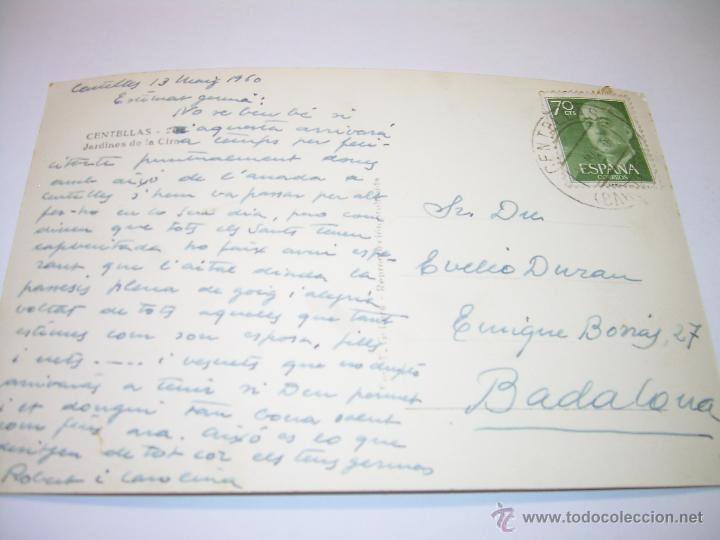 Centelles 13 Maig 1960
Estimat germà:
No se ben bé si
CENTELLAS -
Jardines de la
aquesta arrivará
a temps per feli-
citarte puntualment doncs
amb aixó de l'anada a
Centelles s'hem va passar per alt
fer-ho en lo seu dia, pero com
diuen que tots els Sants tenen
capvuitada ho faix avui espe-
rant que l'aital diada la
passesis plena de goig i alegria
voltat de tots aquells que tant
estimes com son esposa, filles
i nets .... i vesnets que no dupto
arrivarás a tenir si Deu permet
i et dongui tan bona salut
com fins ara. Aixó es lo que
desitgen de tot cor els teus germans
Robert i Carolina
70
CTS
ESPAÑA
CORREOS
Sr. Dn.
Evelio Duran
Enrique Borrás, 27
Badalona
todocoleccion
© www.todocoleccion.net